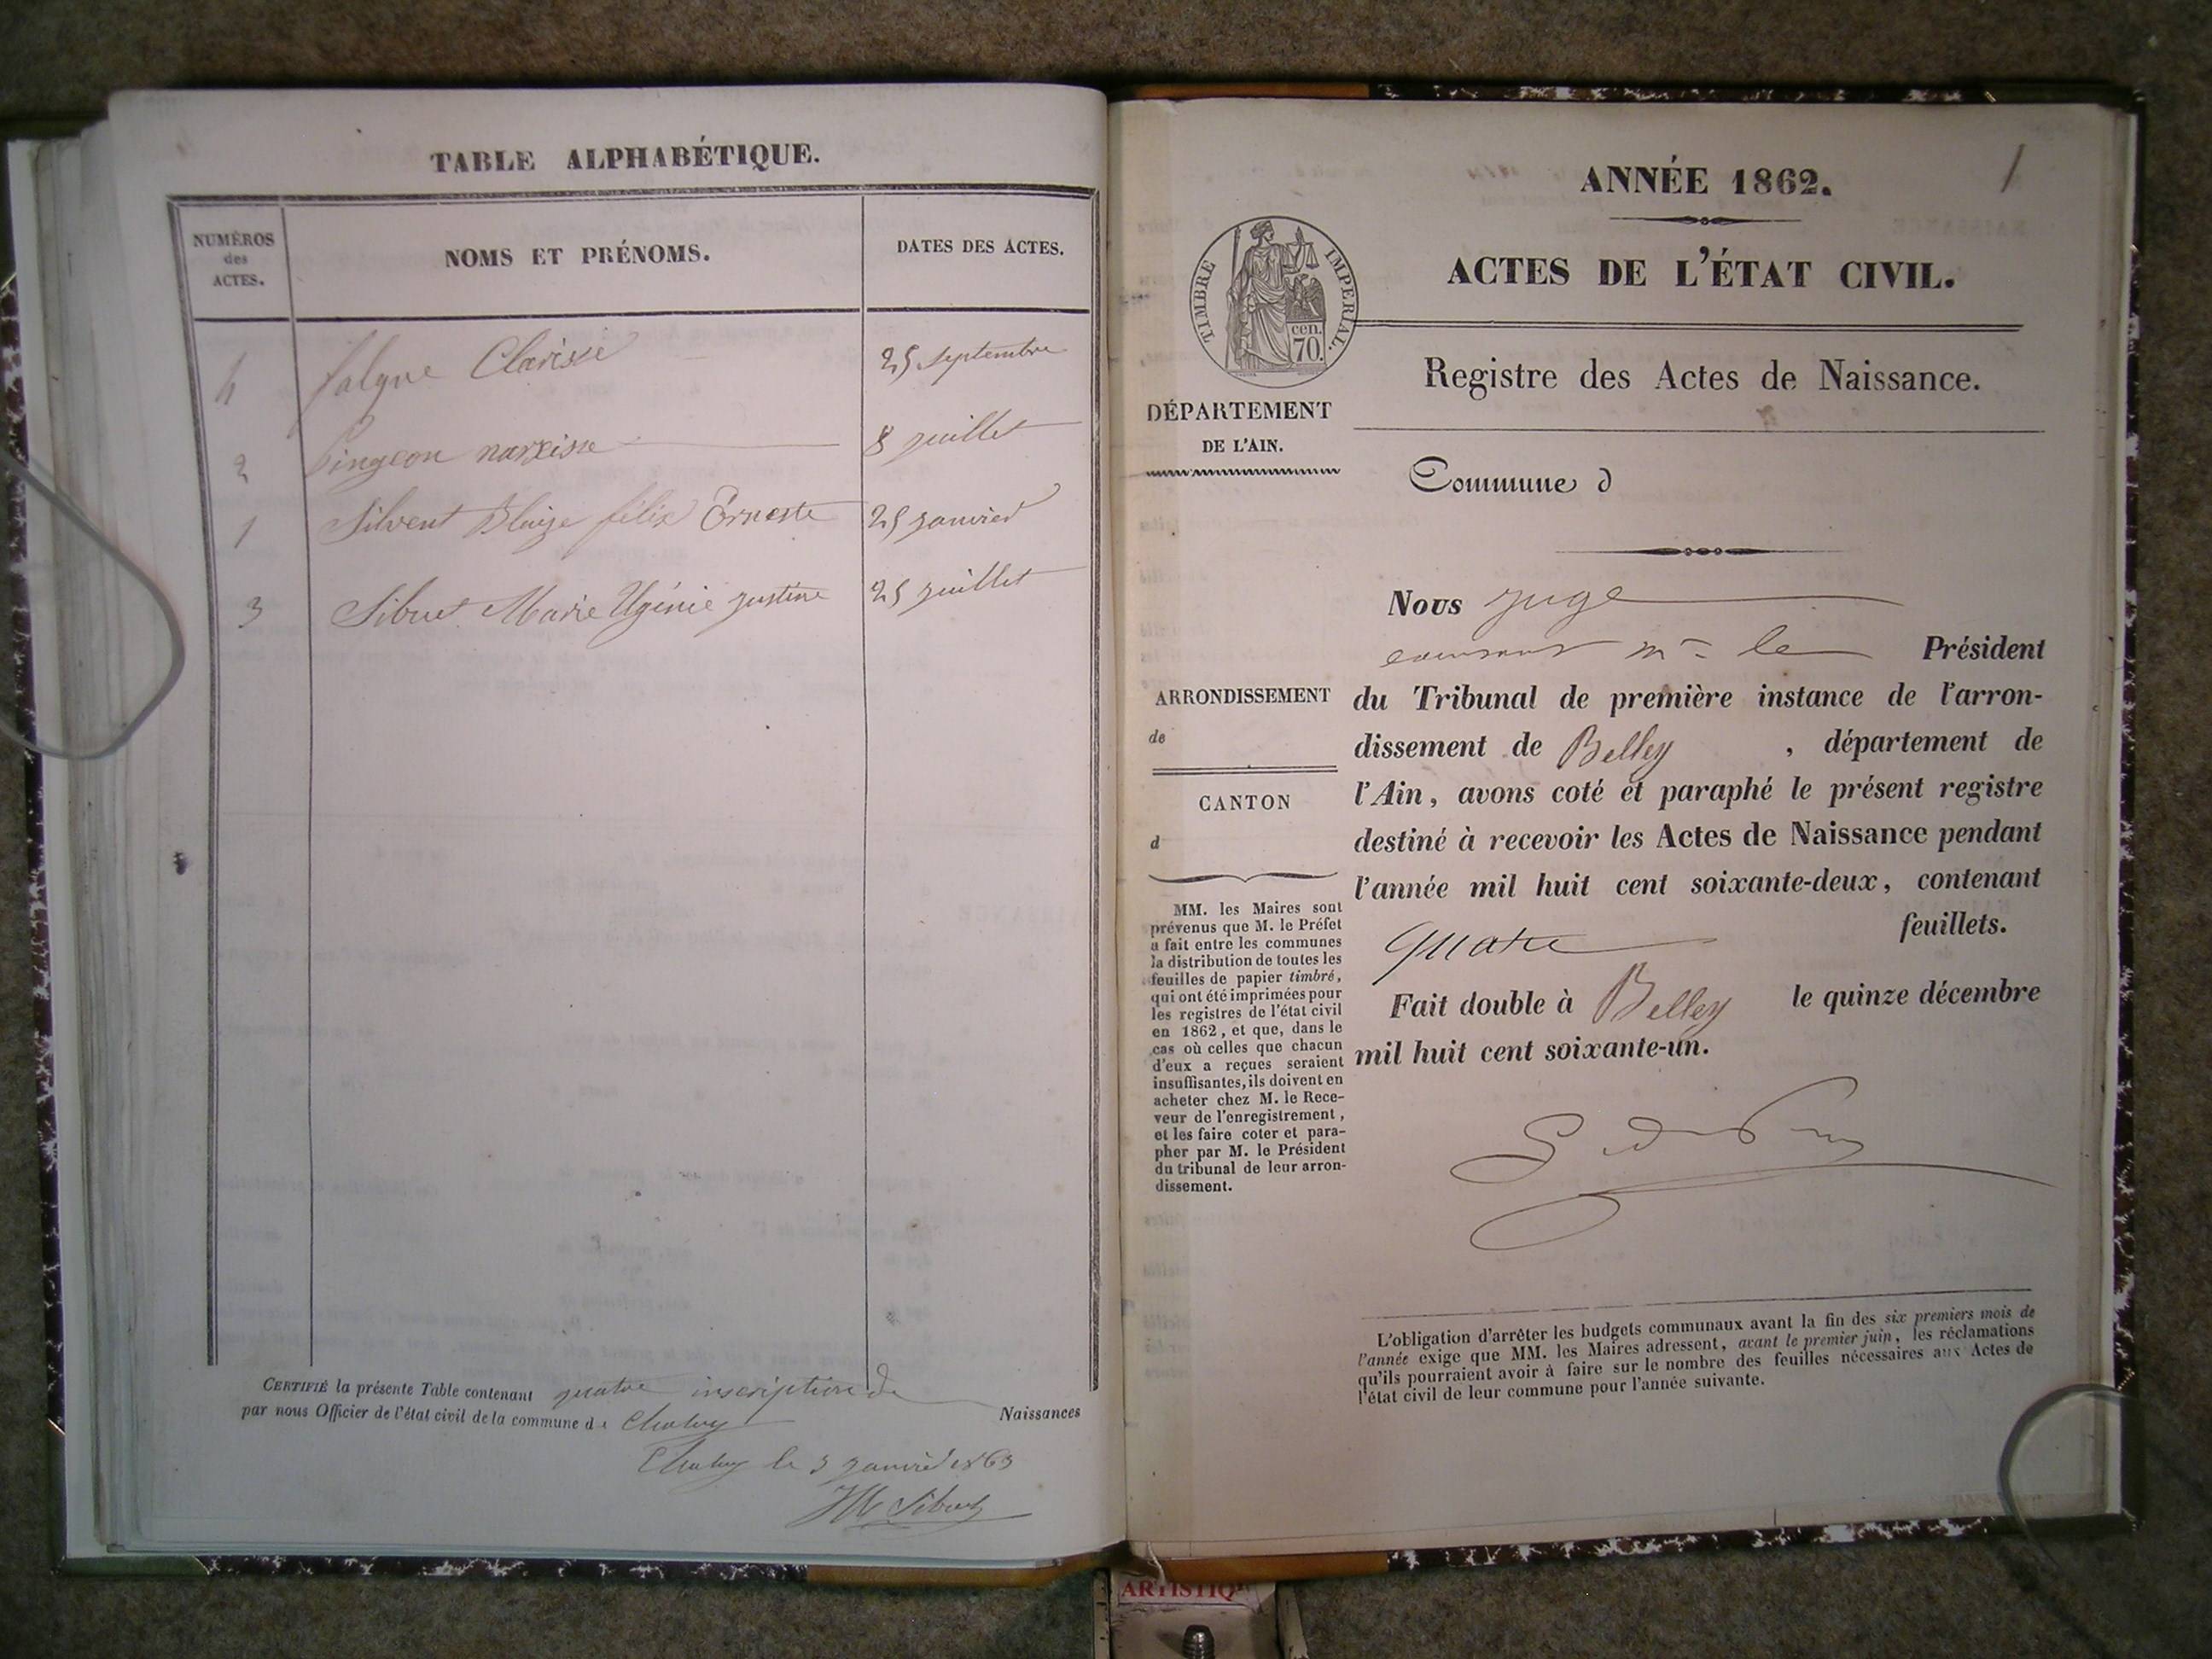 TABLE ALPHABÉTIQUE.
NUMÉROS
des
ACTES.
NOMS ET PRÉNOMS.
DATES DES ACTES.
4 falque Clarisse 25 septembre
2 Pingeon narxisse 8 juillet
1 Silvent Blaise félix Erneste 25 janvier
3 Sibuet Marie Ugénie justine 25 juillet
CERTIFIÉ la présente Table contenant quatre inscription de
Naissances
par nous Officier de l'état civil de la commune de
le 3 janvier 1863
Sibuet
1
ANNÉE 1862.
ACTES DE L'ÉTAT CIVIL.
TIMBRE IMPERIAL.
cen.
70.
DÉPARTEMENT
DE L'AIN.
ARRONDISSEMENT
de
CANTON
d
MM. les Maires sont
prévenus que M. le Préfet
a fait entre les communes
la distribution de toutes les
feuilles de papier timbré,
qui ont été imprimées pour
les registres de l'état civil
en 1862, et que, dans le
cas où celles que chacun
d'eux a reçues seraient
insuffisantes, ils doivent en
acheter chez M. le Rece-
veur de l'enregistrement,
et les faire coter et para-
pher par M. le Président
du tribunal de leur arron-
dissement.
Registre des Actes de Naissance.
Commune d
Nous juge
le Président
du Tribunal de première instance de l'arron-
dissement de Belley , département de
l'Ain, avons coté et paraphé le présent registre
destiné à recevoir les Actes de Naissance pendant
l'année mil huit cent soixante-deux, contenant
quatre feuillets.
Fait double à Belley le quinze décembre
mil huit cent soixante-un.
L'obligation d'arrêter les budgets communaux avant la fin des six premiers mois de
l'année exige que MM. les Maires adressent, avant le premier juin, les réclamations
qu'ils pourraient avoir à faire sur le nombre des feuilles nécessaires aux Actes de
l'état civil de leur commune pour l'année suivante.
ARTISTIQ